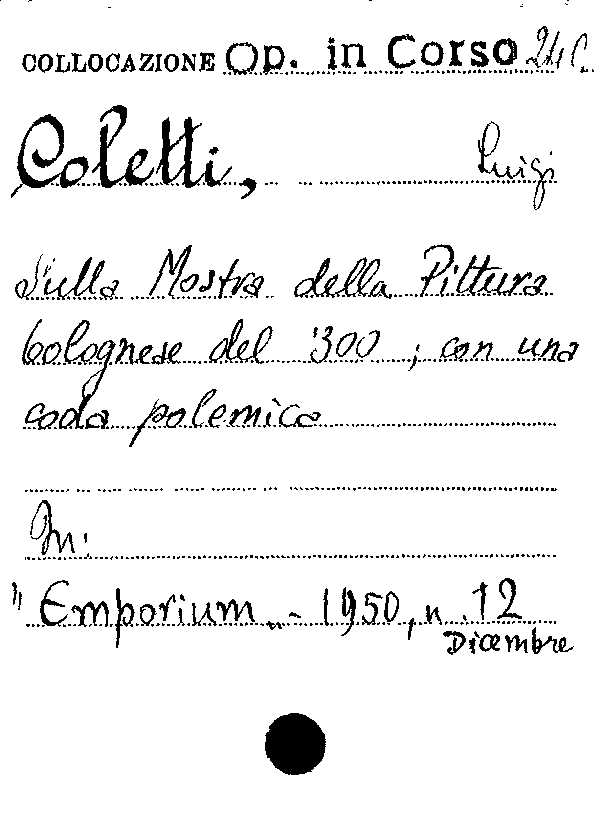 COLLOCAZIONE Op. in Corso
Coletti, Luigi
Sulla Mostra della Pittura
bolognese del '300 ; con una
coda polemica
In:
"Emporium„ - 1950, n. 12
Dicembre